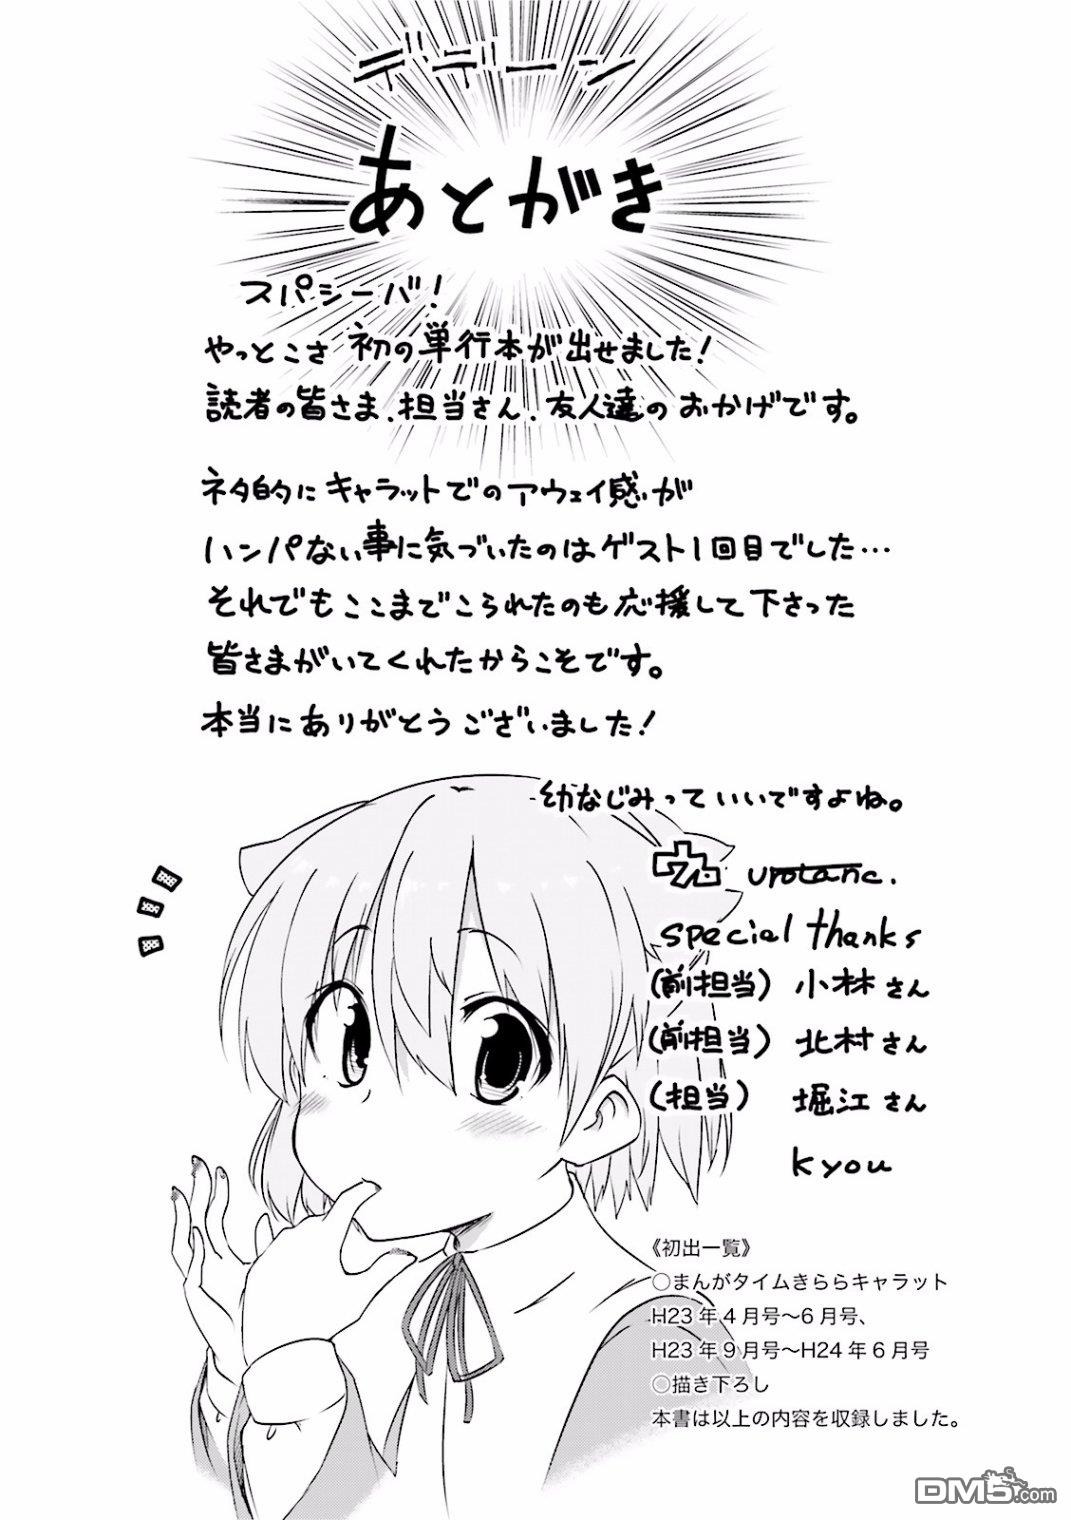 デデーン
あとがき
スパシーバ！
やっとこさ 初の単行本が出せました！
読者の皆さま、担当さん、友人達のおかげです。
ネタ的にキャラットでのアウェイ感が
ハンパない事に気づいたのはゲスト1回目でした…
それでもここまでこられたのも応援して下さった
皆さまがいてくれたからこそです。
本当にありがとうございました！
幼なじみっていいですよね。
ウロ urotanc.
special thanks
（前担当） 小林さん
（前担当） 北村さん
（担当） 堀江さん
kyou
《初出一覧》
○まんがタイムきららキャラット
H23年4月号〜6月号、
H23年9月号〜H24年6月号
○描き下ろし
本書は以上の内容を収録しました。
DM5.com